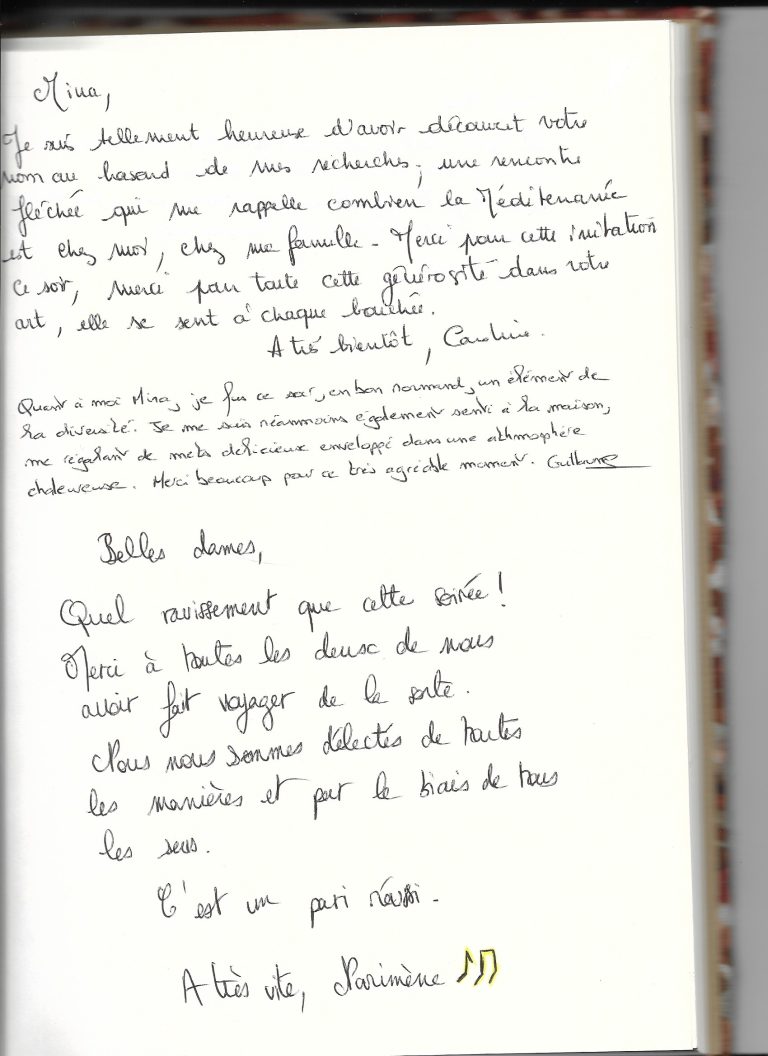 Mina,
Je suis tellement heureuse d'avoir découvert votre
nom au hasard de mes recherches ; une rencontre
fléchée qui me rappelle combien la Méditerranée
est chez moi, chez ma famille - Merci pour cette invitation
ce soir, merci pour toute cette générosité dans votre
art, elle se sent à chaque bouchée.
A très bientôt, Caroline.
Quant à moi Mina, je fus ce soir, en bon normand, un élément de
la diversité. Je me suis néanmoins également senti à la maison,
me régalant de mets délicieux enveloppé dans une athmosphère
chaleureuse. Merci beaucoup pour ce très agréable moment. Guillaume
Belles dames,
Quel ravissement que cette soirée !
Merci à toutes les deux de nous
avoir fait voyager de la sorte.
Nous nous sommes délectés de toutes
les manières et par le biais de tous
les sens.
C'est un pari réussi -
A très vite, Narimène ♪♫